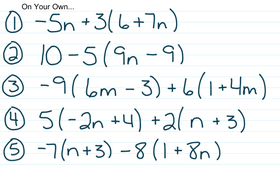 On Your Own...
① -5n + 3(6 + 7n)
② 10 - 5(9n - 9)
③ -9(6m - 3) + 6(1 + 4m)
④ 5(-2n + 4) + 2(n + 3)
⑤ -7(n + 3) - 8(1 + 8n)